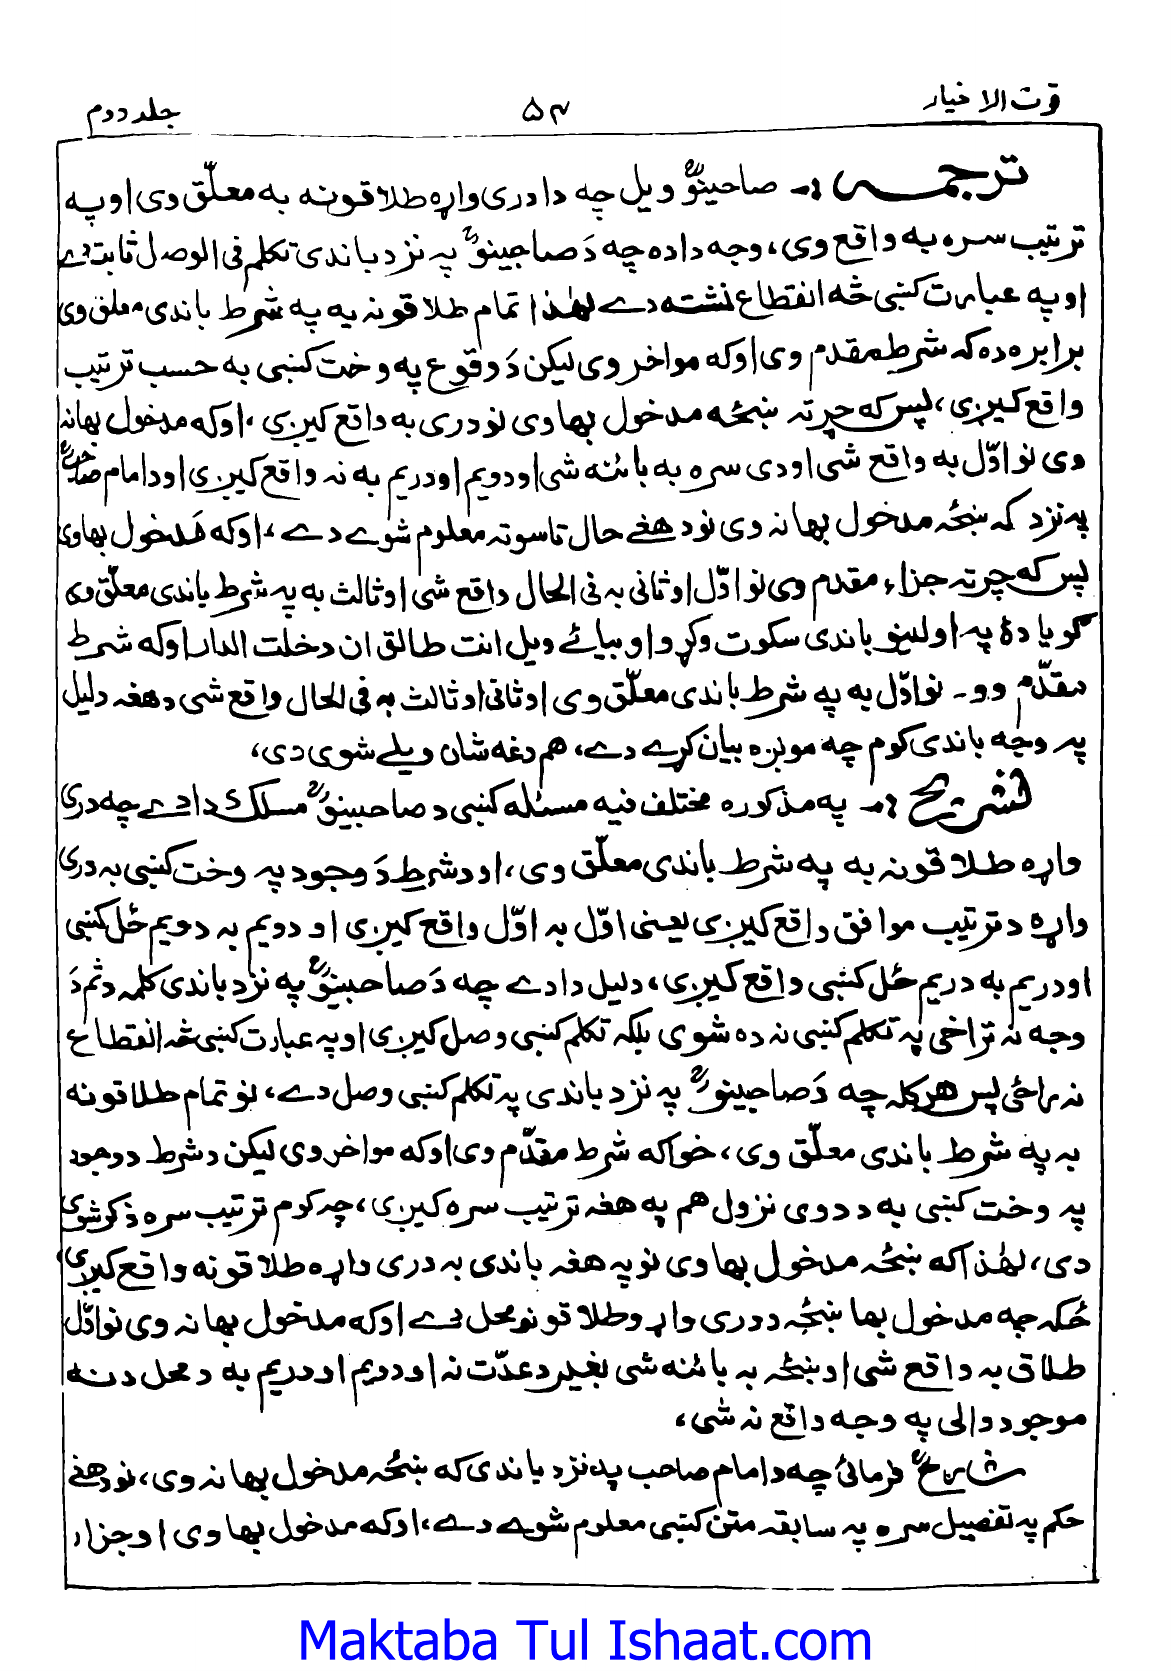 قوت الاخیار ۵۴ جلد دوم
ترجمہ :- صاحبینوؒ ویل چه دا دری واړه طلاقونه به معلّق دی او په
ترتیب سره به واقع وی، وجه داده چه دَ صاحبینوؒ په نزد باندی تکلم فی الوصل ثابت دے
او په عبارت کښی څه انقطاع نشته دے لهٰذا تمام طلاقونه به په شرط باندی معلق وی
برابره ده که شرط مقدم وی او که مواخر وی لیکن دَ وقوع په وخت کښی به حسب ترتیب
واقع کیږی، پس که چرته ښځه مدخول بها وی نو دری به واقع کیږی، او که مدخول بها نه
وی نو اوّل به واقع شی او دی سره به بائنه شی او دویم او دریم به نه واقع کیږی او د امام صاحبؒ
په نزد که ښځه مدخول بها نه وی نو د هغے حال تاسو ته معلوم شوے دے، او که مدخول بها وی
پس که چرته جزاء مقدم وی نو اوّل او ثانی به فی الحال واقع شی او ثالث به په شرط باندی معلّق وی
گویا دۀ په اولینو باندی سکوت وکړو او بیائے ویل انت طالق ان دخلت الدار او که شرط
مقدّم وو- نو اوّل به په شرط باندی معلّق وی او ثانی او ثالث به فی الحال واقع شی د هغه دلیل
په وجه باندی کوم چه مونږه بیان کړے دے، هم دغه شان ویلے شوی دی،
تشریح :- په مذکوره مختلف فیه مسئله کښی د صاحبینوؒ مسلک دا دے چه دری
واړه طلاقونه به په شرط باندی معلّق وی، او د شرط دَ وجود په وخت کښی به دری
واړه د ترتیب موافق واقع کیږی یعنی اوّل به اوّل واقع کیږی او دویم به دویم ځل کښی
او دریم به دریم ځل کښی واقع کیږی، دلیل دا دے چه دَ صاحبینوؒ په نزد باندی کلمه د ثم دَ
وجه نه تراخی په تکلم کښی نه ده شوی بلکه تکلم کښی وصل کیږی او په عبارت کښی څه انقطاع
نه راځی پس هر کله چه دَ صاحبینوؒ په نزد باندی په تکلم کښی وصل دے، نو تمام طلاقونه
به په شرط باندی معلّق وی، خوا که شرط مقدّم وی او که مواخر وی لیکن د شرط د وجود
په وخت کښی به د دوی نزول هم په هغه ترتیب سره کیږی، چه کوم ترتیب سره ذکر شوی
دی، لهٰذا که ښځه مدخول بها وی نو په هغه باندی به دری واړه طلاقونه واقع کیږی
ځکه چه مدخول بها ښځه د دری واړو طلاقونو محل دے او که مدخول بها نه وی نو اوّل
طلاق به واقع شی او ښځه به بائنه شی بغیر د عدّت نه او دویم او دریم به د محل د نه
موجود والی په وجه واقع نه شی،
شارحؒ فرمائی چه د امام صاحب په نزد باندی که ښځه مدخول بها نه وی، نو د هغے
حکم په تفصیل سره په سابقه متن کښی معلوم شوے دے، او که مدخول بها وی او جزاء
Maktaba Tul Ishaat.com